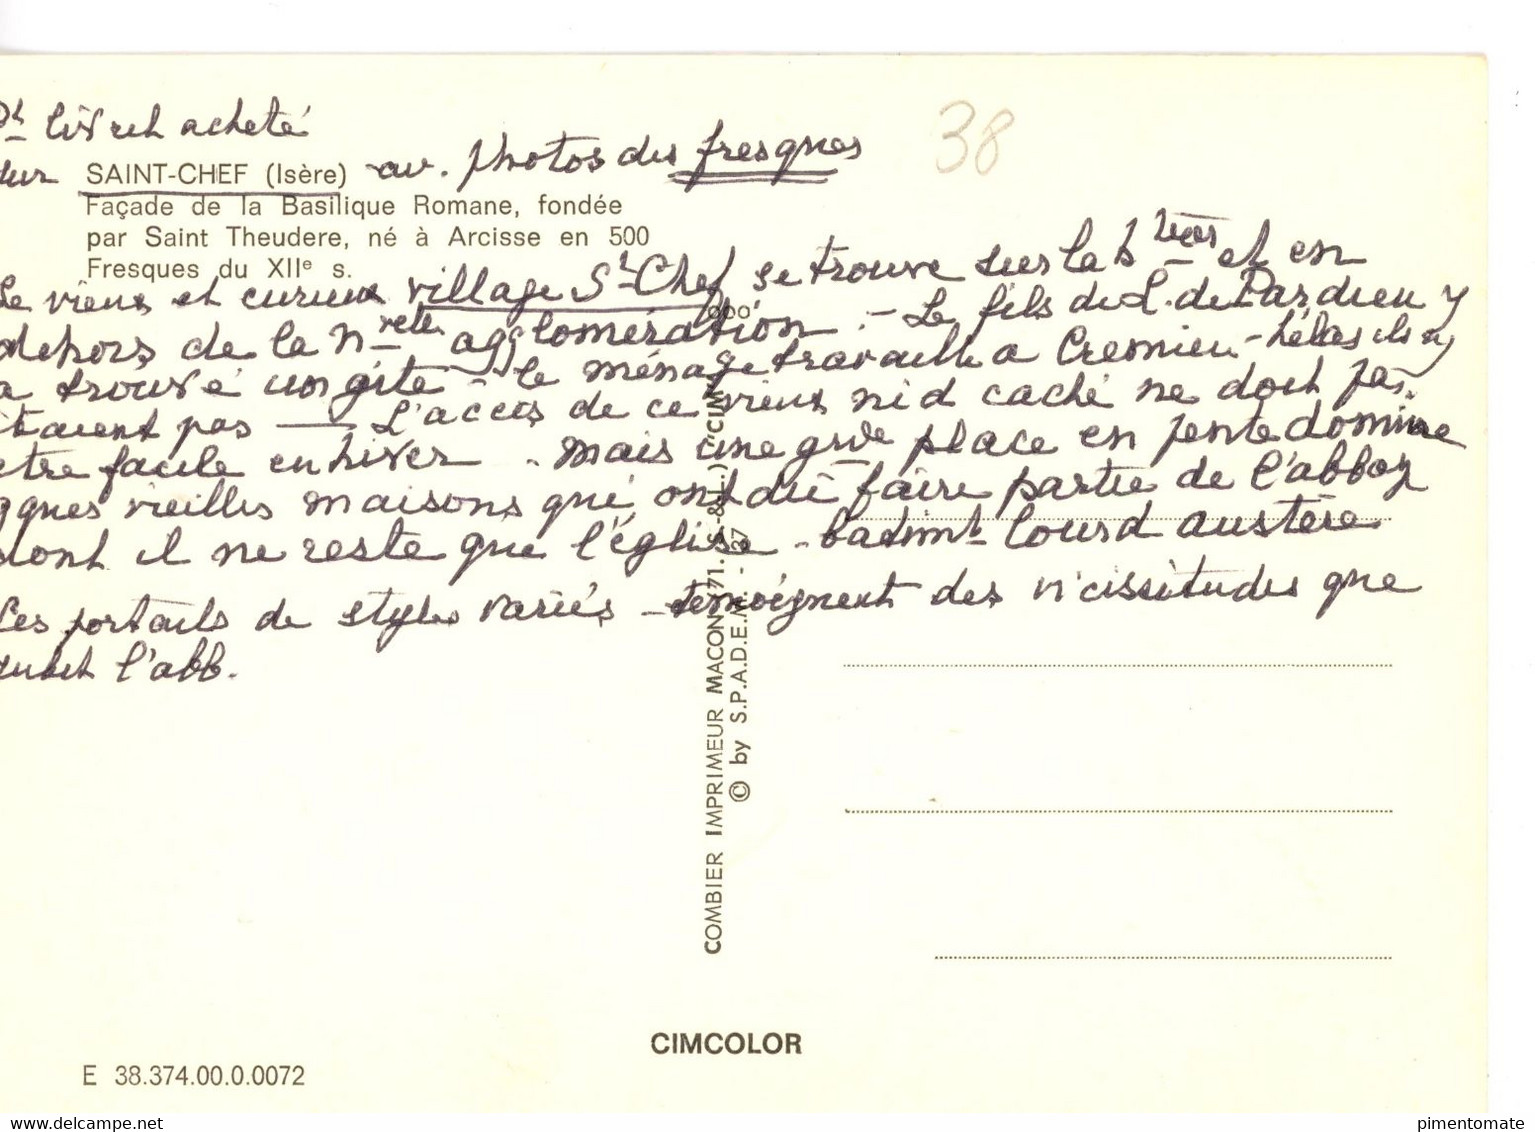 Pt livret acheté
sur SAINT-CHEF (Isère) av. photos des fresques
38
Façade de la Basilique Romane, fondée
par Saint Theudere, né à Arcisse en 500
Fresques du XIIe s.
Le vieux et curieux village St Chef se trouve sur la et en
dehors de la nvelle agglomération. - Le fils de L. de Pardieu y
a trouvé un gîte - le ménage travaille à Cremieu - hélas ils n'y
étaient pas — L'accès de ce vieux nid caché ne doit pas
être facile en hiver - mais une gde place en pente domine
qques vieilles maisons qui ont dû faire partie de l'abbay
dont il ne reste que l'église - batimt lourd austère
Les portails de styles variés - témoignent des vicissitudes que
subit l'abb.
COMBIER IMPRIMEUR MACON (71. S.-&-L.) ("CIM")
© by S.P.A.D.E.M. - 37
CIMCOLOR
E 38.374.00.0.0072
www.delcampe.net
pimentomate